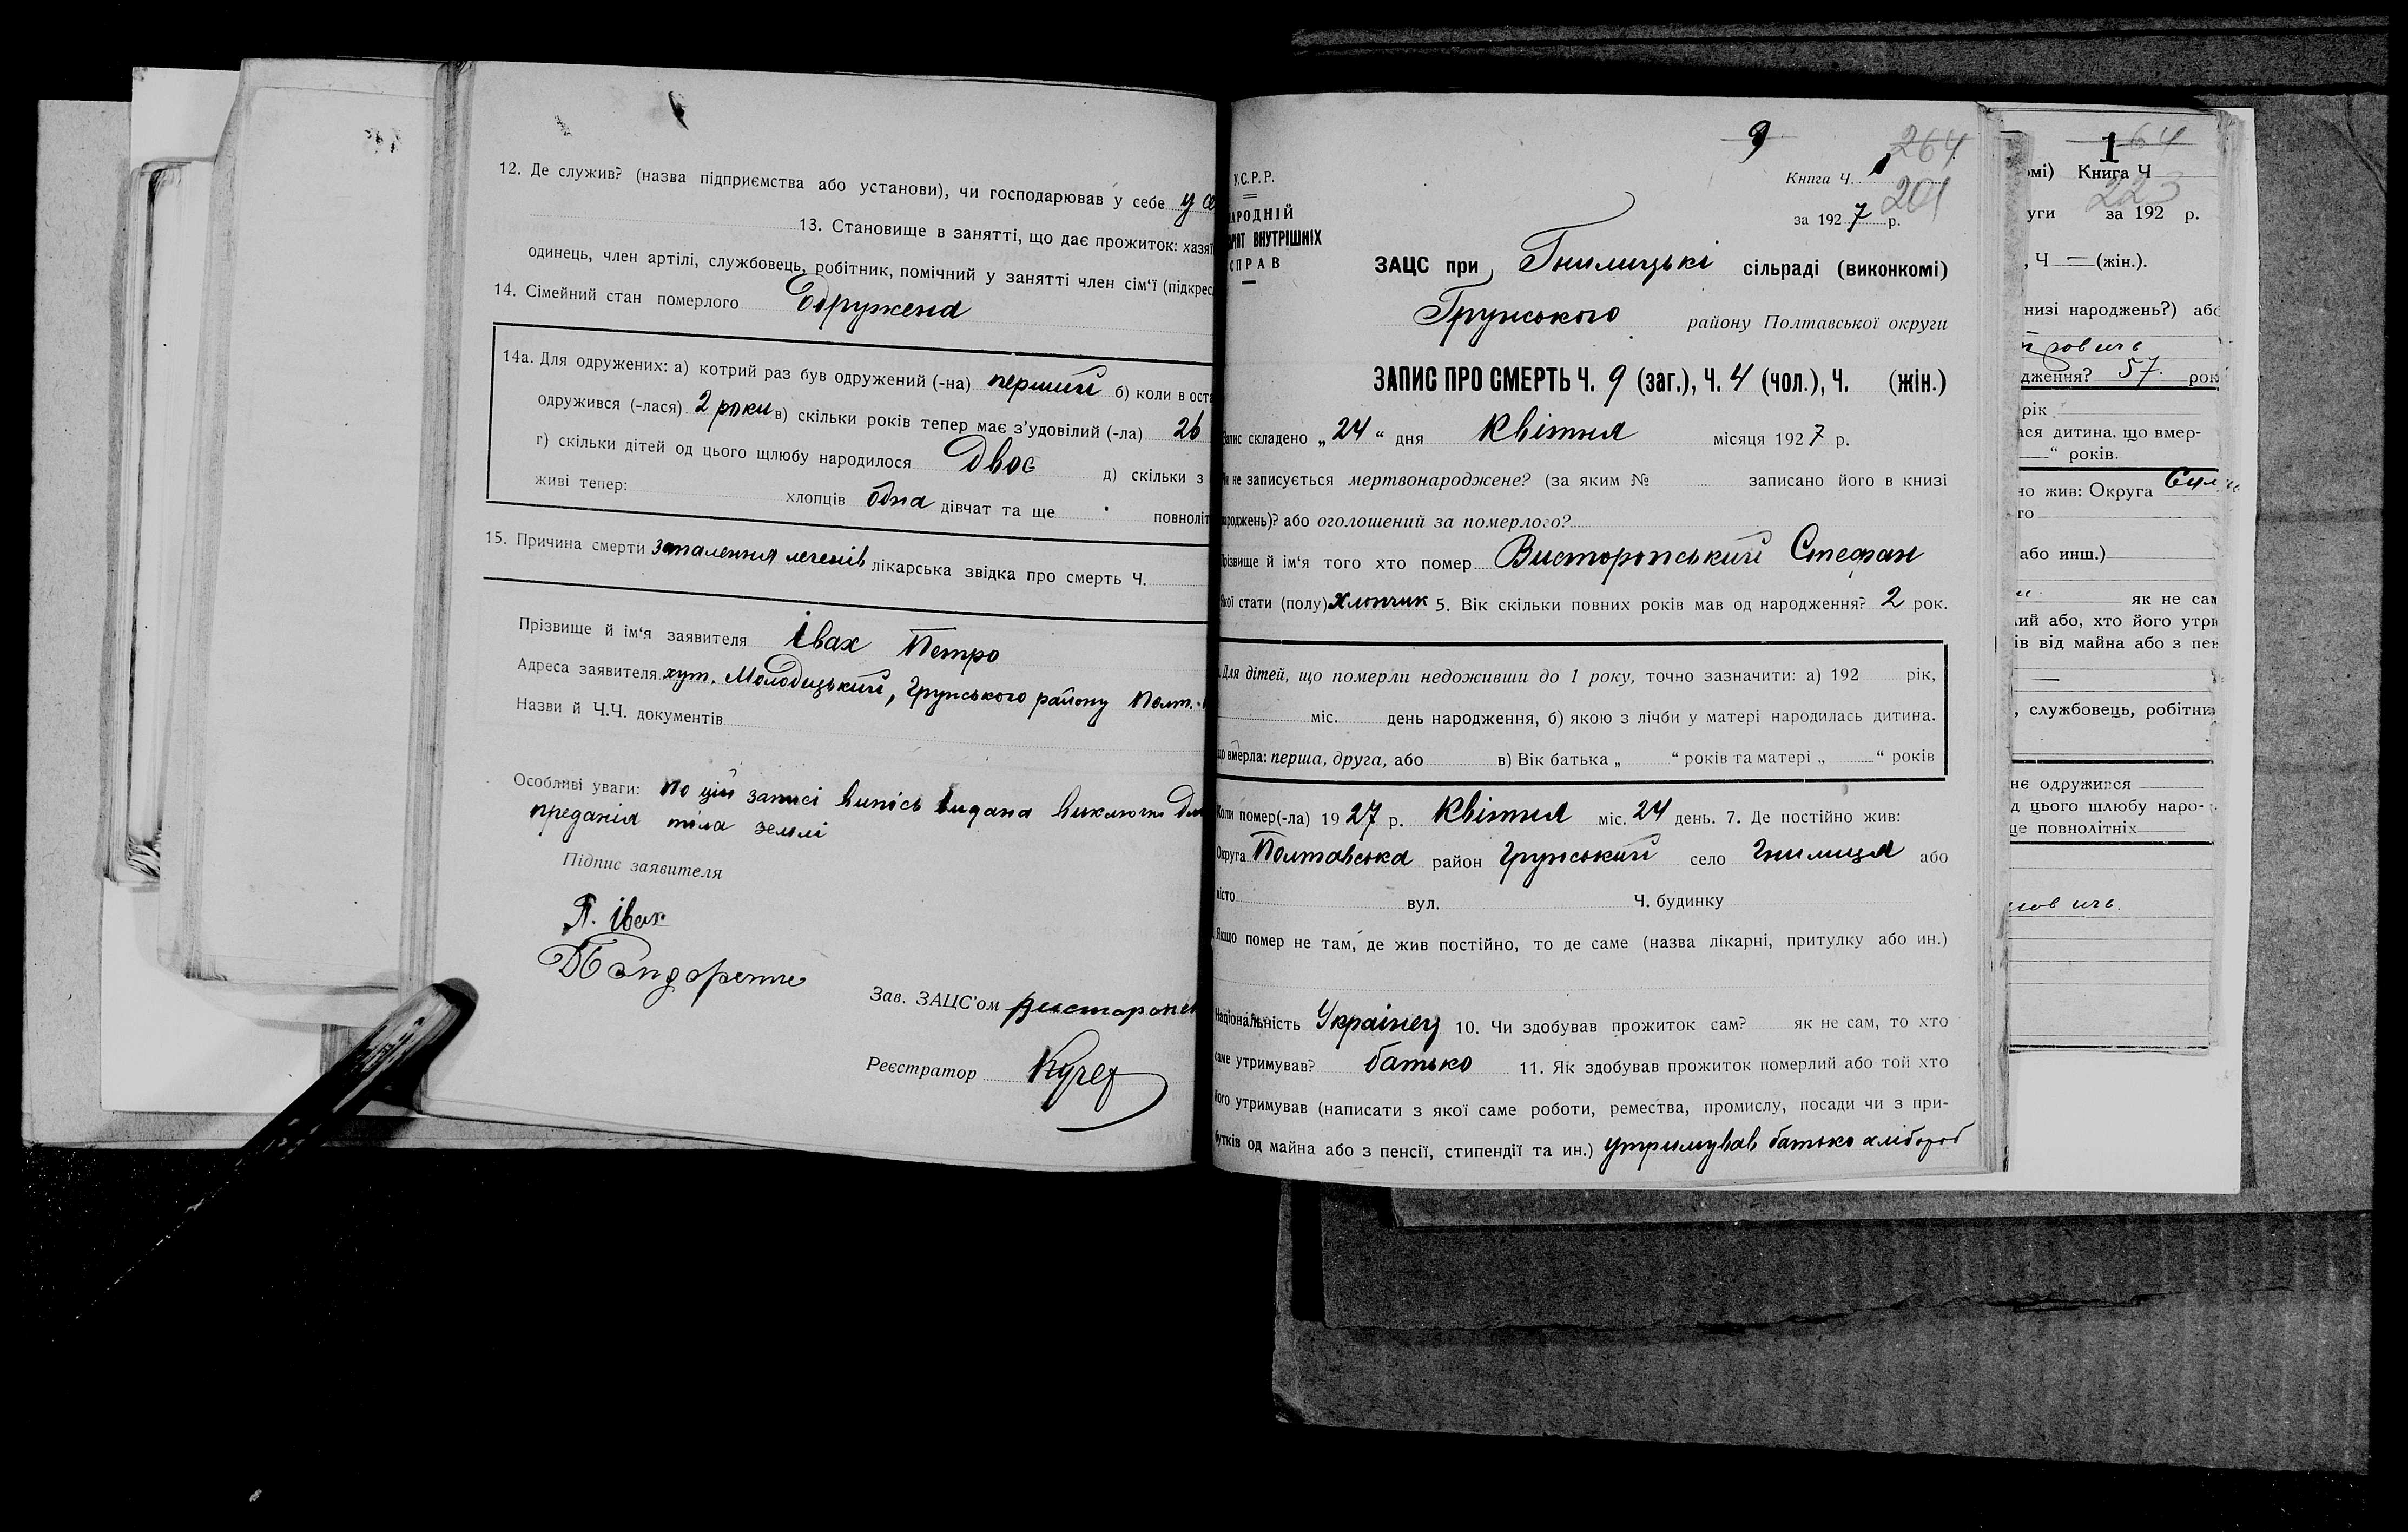 12. Де служив? (назва підприємства або установи), чи господарював у себе у
13. Становище в занятті, що дає прожиток: хазяї
одинець, член артілі, службовець, робітник, помічний у занятті член сім'ї (підкрес
14. Сімейний стан померлого Одружена
14а. Для одружених: а) котрий раз був одружений (-на) перший б) коли в оста
одружився (-лася) 2 роки в) скільки років тепер має з'удовілий (-ла) 26
г) скільки дітей од цього шлюбу народилося Двоє д) скільки з
живі тепер: хлопців одна дівчат та ще повноліт
15. Причина смерти запалення легенів лікарська звідка про смерть Ч.
Прізвище й ім'я заявителя Івах Петро
Адреса заявителя хут. Молодецький, Грунського району Полт.
Назви й Ч.Ч. документів
Особливі уваги: по цій записі випісь видана виключно для
преданія тіла землі
Підпис заявителя
П. Івах
Зав. ЗАЦС'ом Висторопс
Реєстратор
9
264
201
У.С.Р.Р.
АРОДНІЙ
РІЯТ ВНУТРІШНІХ
СПРАВ
Книга Ч. 1
за 1927 р.
ЗАЦС при Гнилицькі сільраді (виконкомі)
Грунського району Полтавської округи
ЗАПИС ПРО СМЕРТЬ Ч. 9 (заг.), Ч. 4 (чол.), Ч. (жін.)
Запис складено „24“ дня Квітня місяця 1927 р.
Чи не записується мертвонароджене? (за яким № записано його в книзі
народжень)? або оголошений за померлого?
Прізвище й ім'я того хто помер Висторопський Стефан
Якої стати (полу) Хлопчик 5. Вік скільки повних років мав од народження? 2 рок.
Для дітей, що померли недоживши до 1 року, точно зазначити: а) 192 рік,
міс. день народження, б) якою з лічби у матері народилась дитина.
що вмерла: перша, друга, або в) Вік батька „ “ років та матері „ “ років
Коли помер(-ла) 1927 р. Квітня міс. 24 день. 7. Де постійно жив:
Округа Полтавська район Грунський село Гнилиця або
місто вул. Ч. будинку
Якщо помер не там, де жив постійно, то де саме (назва лікарні, притулку або ин.)
Національність Українец 10. Чи здобував прожиток сам? як не сам, то хто
саме утримував? батько 11. Як здобував прожиток померлий або той хто
його утримував (написати з якої саме роботи, ремества, промислу, посади чи з при-
бутків од майна або з пенсії, стипендії та ин.) утримував батько хлібороб
1 64
омі) Книга Ч
223
уги за 192 р.
, Ч — (жін.).
низі народжень?) або
дження? 57. рок
рік
ася дитина, що вмер-
— “ років.
но жив: Округа
го
або инш.)
як не сам
ий або, хто його утри
ів від майна або з пен
, службовець, робітни
нє одружився
д цього шлюбу наро-
ще повнолітніх